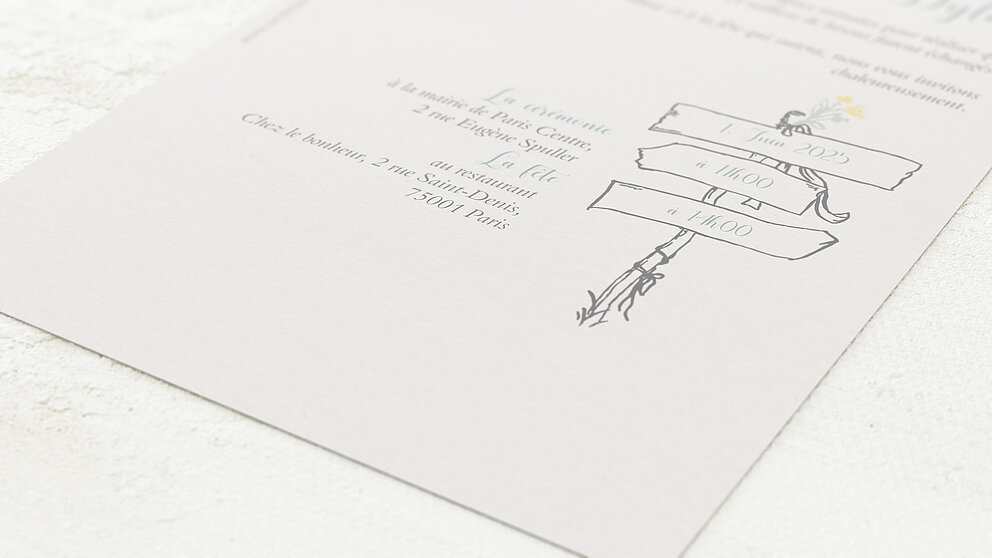 nous vous invitons
chaleureusement.
La cérémonie
à la mairie de Paris Centre,
2 rue Eugène Spuller
La fête
au restaurant
Chez le bonheur, 2 rue Saint-Denis,
75001 Paris
1. Juin 2025
à 11h00
à 14h00